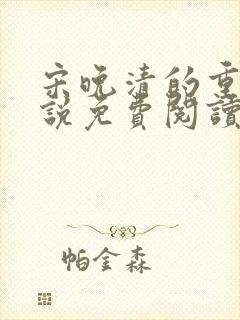 宋晚清的重
說免費閱讀
帕金森